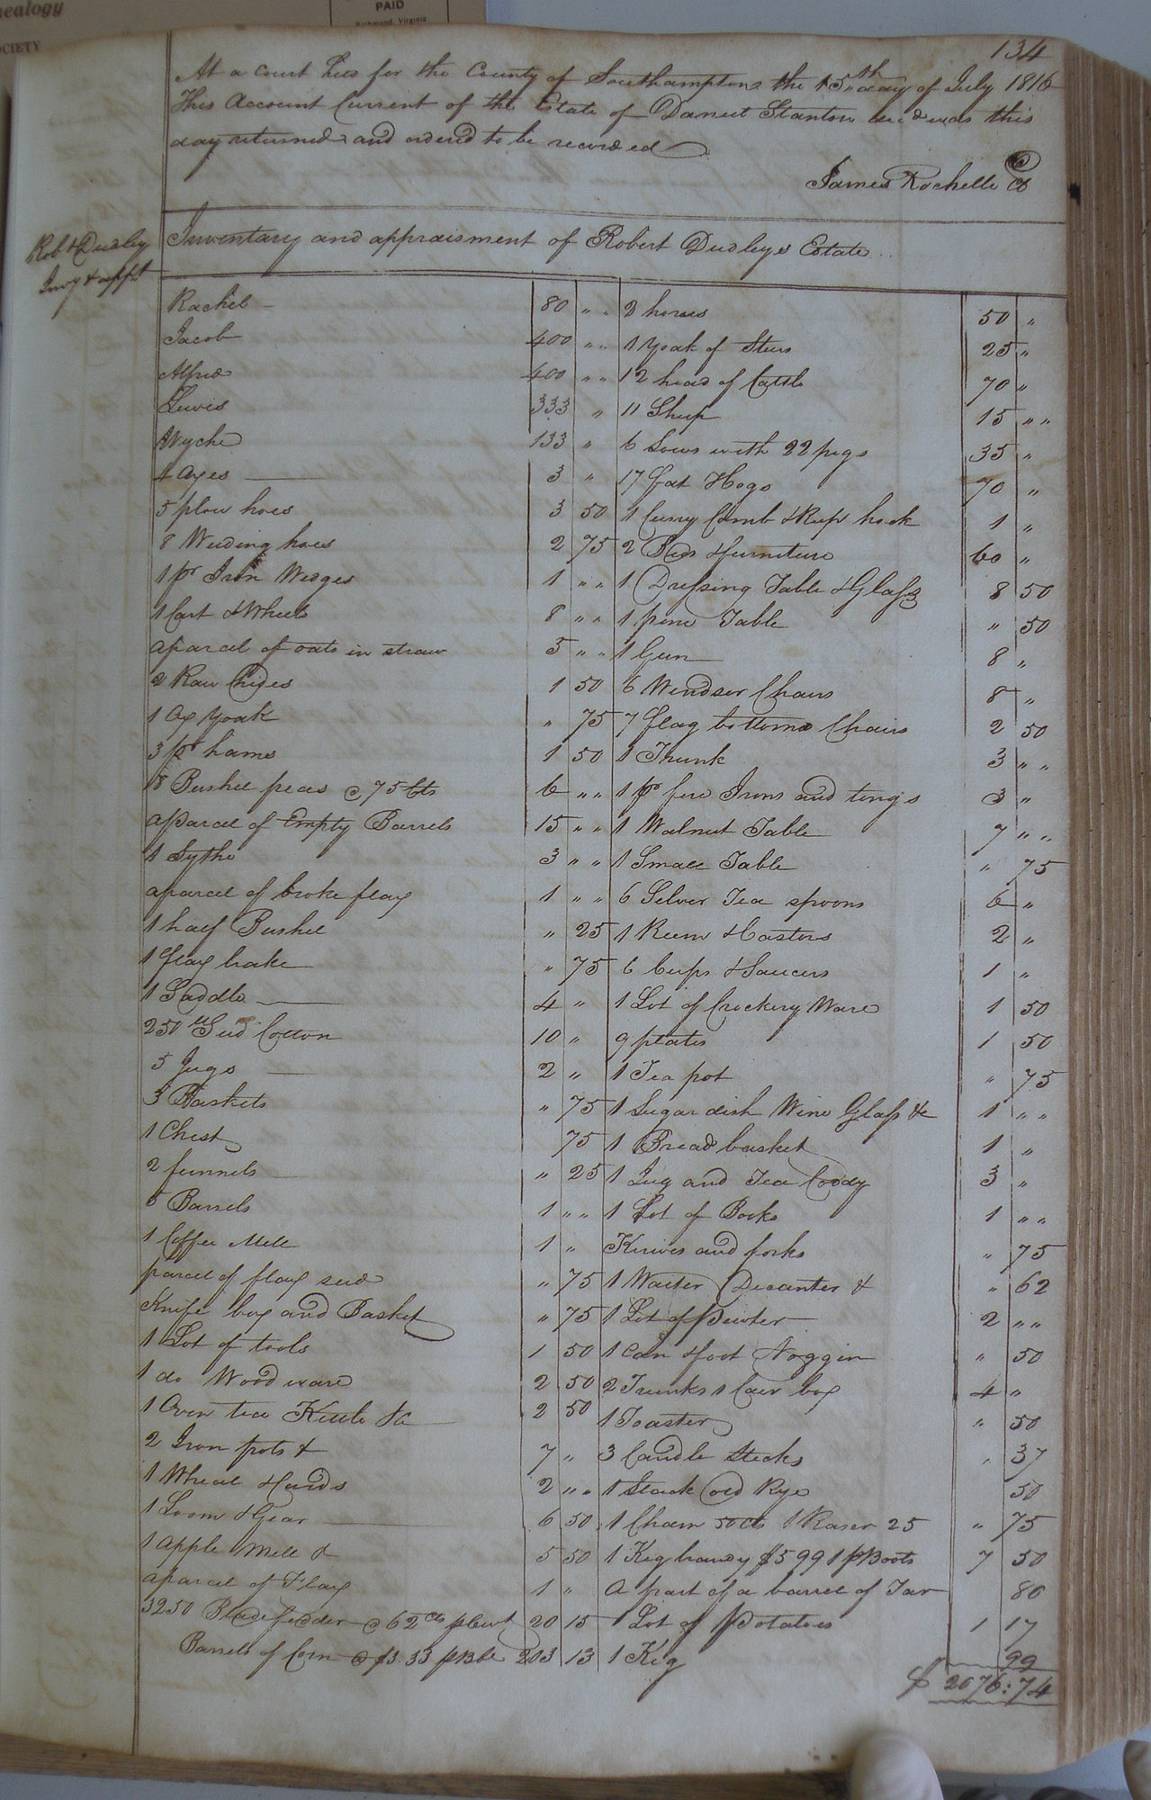 nealogy
OCIETY
PAID
Richmond, Virginia
134
At a Court held for the County of Southampton the 15th day of July 1816
This Account Current of the Estate of Daniel Stanton decd was this
day returned and ordered to be recorded
James Rochelle C
Robt Dudley
Invy & appt
Inventary and appraisment of Robert Dudleys Estate
Rachel 80 " "
Jacob 400 " "
Alfred 400 " "
Lewis 333 "
Wyche 133 "
4 axes 3 "
5 plow hoes 3 50
8 Weeding hoes 2 75
1 pr Iron Wedges 1 " "
1 Cart & Wheels 8 " "
a parcel of oats in straw 5 " "
2 Raw hides 1 50
1 Ox Yoak " 75
3 pr hams 1 50
8 Bushel peas @ 75 Cts 6 " "
a parcel of Empty Barrels 15 " "
1 Sythe 3 " "
a parcel of broke flax 1 " "
1 half Bushel " 25
1 flax brake " 75
1 Saddle 4 "
250 lb Seed Cotton 10 "
5 Jugs 2 "
3 Baskets " 75
1 Chest 75
2 funnels " 25
5 Barrels 1 " "
1 Coffee Mill 1 "
parcel of flax seed " 75
Knife box and Basket " 75
1 Lot of tools 1 50
1 do Wood ware 2 50
1 Oven tea Kettle &c 2 50
2 Iron pots & 7 "
1 Wheel & Cards 2 " "
1 Loom & Gear 6 50
1 apple Mill & 5 50
a parcel of Flax 1 "
3250 Blade fodder @ 62 cts p Cwt 20 15
Barrels of Corn @ $3.33 p Bbl 203 13
2 horses 50 "
1 Yoak of Steers 25 "
12 head of Cattle 70 "
11 Sheep 15 " "
6 Sows with 22 pigs 35 "
17 fat Hogs 70 "
1 Curry Comb & Reap hook 1 "
2 Beds & furniture 60 "
1 Dressing Table & Glass 8 50
1 pine Table " 50
1 Gun 8 "
6 Windsor Chairs 8 "
7 flag bottomd Chairs 2 50
1 Trunk 3 " "
1 pr fire Irons and tongs 3 "
1 Walnut Table 7 " "
1 Small Table " 75
6 Silver Tea spoons 6 "
1 Castors 2 "
6 Cups & Saucers 1 "
1 Lot of Crockery Ware 1 50
9 plates 1 50
1 Tea pot " 75
1 Sugar dish Wine Glass &c 1 " "
1 Bread basket 1 "
1 Jug and Tea Coody 3 "
1 Lot of Books 1 " "
Knives and forks " 75
1 Waiter Decanter & " 62
1 Lot of Pewter 2 " "
1 Can & foot Noggin " 50
2 Trunks 1 box 4 "
1 Toaster " 50
3 Candle Sticks " 37
1 Stack old Rye 50
1 Chain 50 cts 1 Rasor 25 " 75
1 Keg brandy $5 99 1 p Boots 7 50
A part of a barrel of Tar 80
1 Lot of Potatoes 1 17
1 Keg 99
$ 2076:74